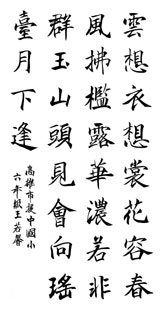 雲想衣想裳花容春
風拂檻露華濃若非
群玉山頭見會向瑤
臺月下逢
高雄市援中國小
六年級王若馨